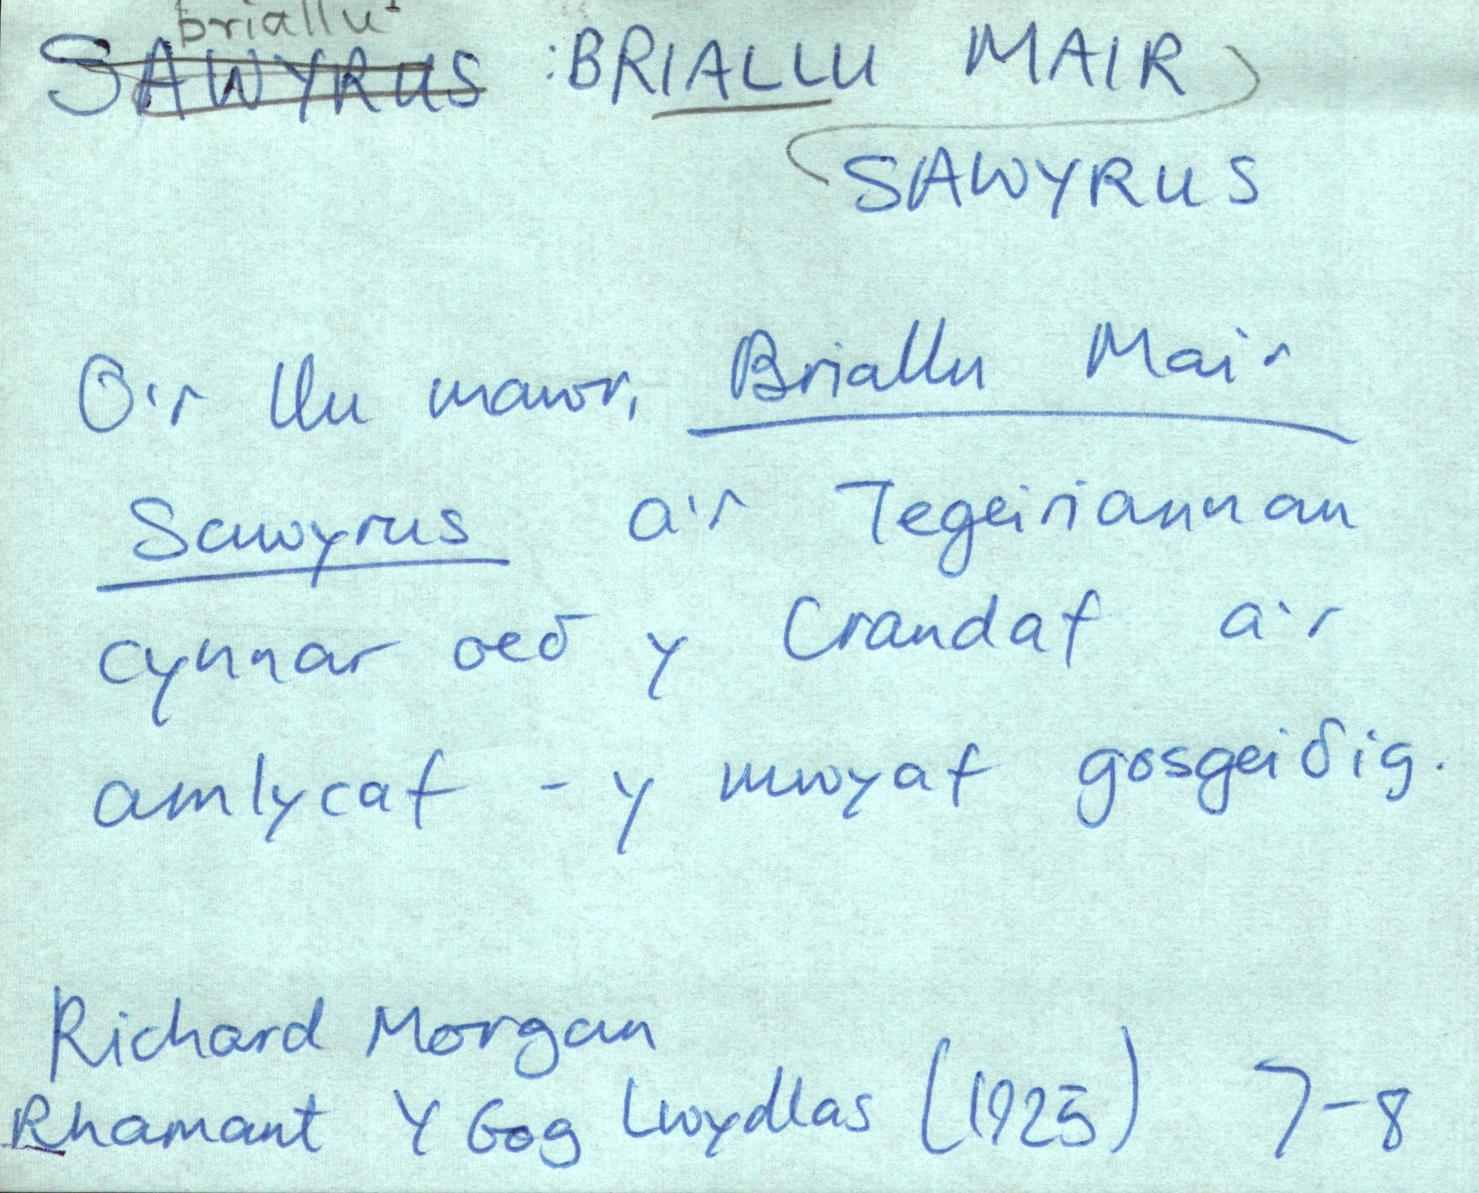 briallu¹
SAWYRUS : BRIALLU MAIR
SAWYRUS
O'r llu mawr, Briallu Mair
Sawyrus a'r Tegeiriannau
cynnar oeð y Crandaf a'r
amlycaf - y mwyaf gosgeiðig.
Richard Morgan
Rhamant Y Gog Lwydlas (1925) 7-8